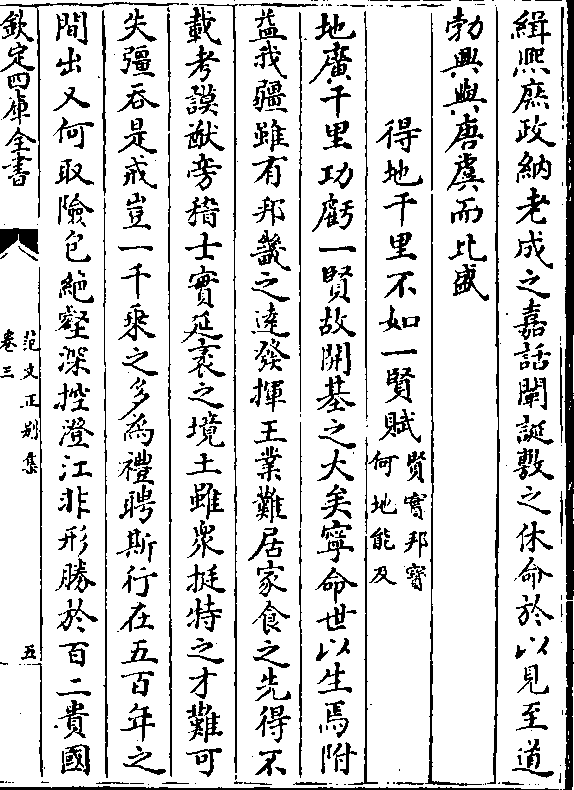 緝熙庶政納老成之嘉話闡誕敷之休命於以見至道
勃興與唐虞而比盛
得地千里不如一賢賦賢實邦寳何地能及
地廣千里功虧一賢故開基之大矣寧命世以生焉附
益我疆雖有邦畿之逺發揮王業難居家食之先得不
載考謨猷旁稽士實延袤之境土雖衆挺特之才難可
失疆吞是戒豈一千乘之多為禮聘斯行在五百年之
間出又何取險包絶壑深控澄江非形勝於百二貴國
欽定四庫全書
范文正別集
卷三
五